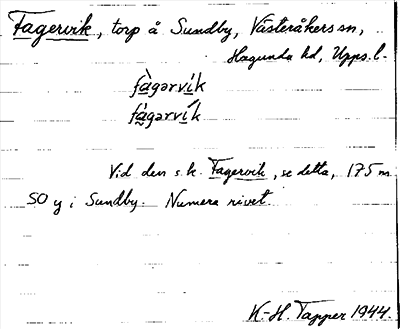 Fagervik, torp å Sundby, Västeråkers sn,
Hagunda hd, Upps. l.
fàgərvík
fágərvík
Vid den s.k. Fagervik, se detta, 175 m
SO y i Sundby. Numera rivet.
K.-H. Tapper 1944.